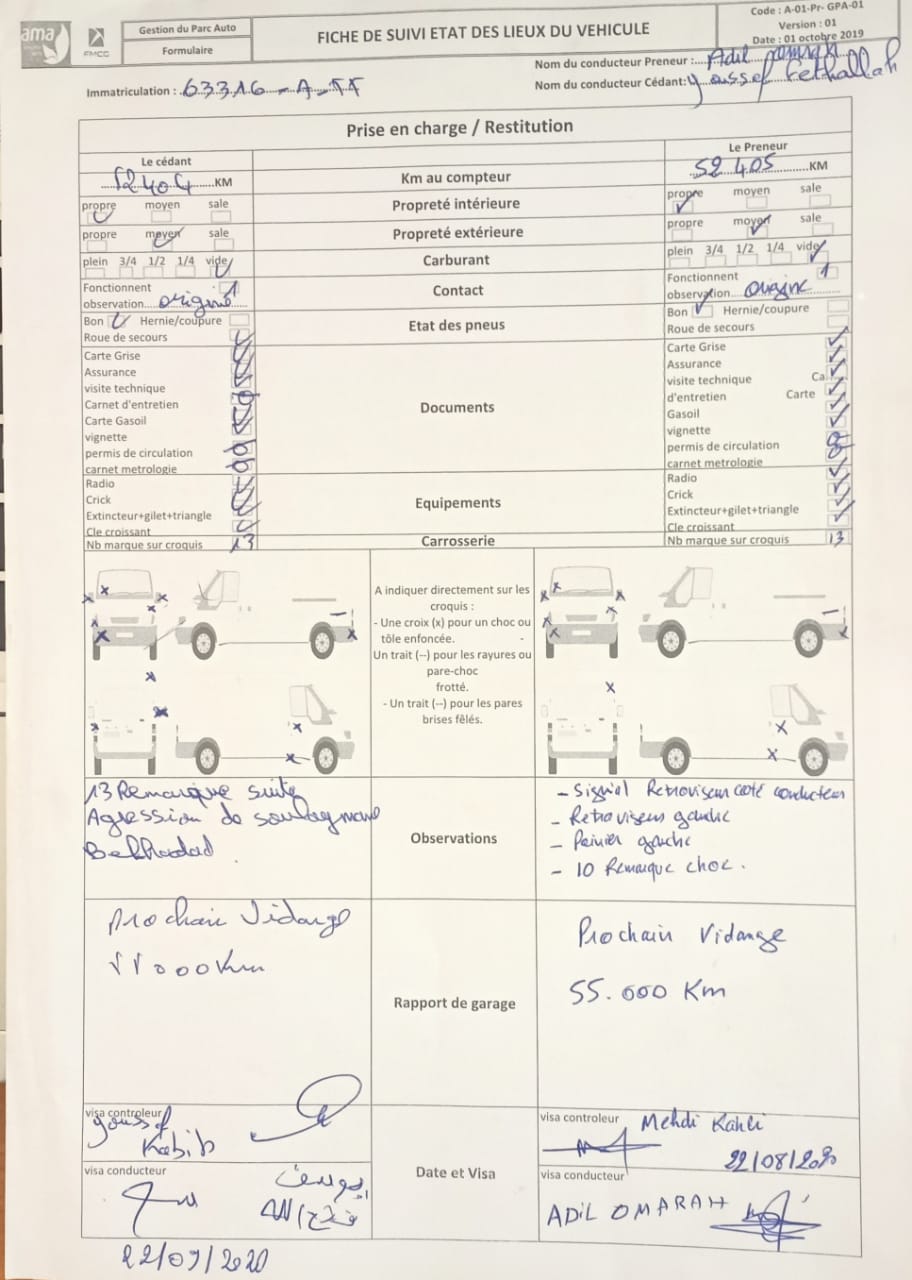 ama
FMCC
Gestion du Parc Auto
Formulaire
FICHE DE SUIVI ETAT DES LIEUX DU VEHICULE
Code : A-01-Pr- GPA-01
Version : 01
Date : 01 octobre 2019
Nom du conducteur Preneur : Adil
Immatriculation : 63316-A-55
Nom du conducteur Cédant: Youssef Fethallah
Prise en charge / Restitution
Le cédant
Le Preneur
52404 KM
Km au compteur
52 405 KM
propre moyen sale
Propreté intérieure
propre moyen sale
propre moyen sale
Propreté extérieure
propre moyen sale
plein 3/4 1/2 1/4 vide
Carburant
plein 3/4 1/2 1/4 vide
Fonctionnent 1
observation origine
Contact
Fonctionnent 1
observation origine
Bon Hernie/coupure
Roue de secours
Etat des pneus
Bon Hernie/coupure
Roue de secours
Carte Grise
Assurance
visite technique
Carnet d'entretien
Carte Gasoil
vignette
permis de circulation
carnet metrologie
Documents
Carte Grise
Assurance
visite technique Ca
d'entretien Carte
Gasoil
vignette
permis de circulation
carnet metrologie
Radio
Crick
Extincteur+gilet+triangle
Cle croissant
Equipements
Radio
Crick
Extincteur+gilet+triangle
Cle croissant
Nb marque sur croquis 13
Carrosserie
Nb marque sur croquis 13
A indiquer directement sur les
croquis :
- Une croix (x) pour un choc ou
tôle enfoncée. -
Un trait (--) pour les rayures ou
pare-choc
frotté.
- Un trait (--) pour les pares
brises fêlés.
13 Remarque suite
Agression de
Belhadad.
Observations
- Signal Retroviseur coté conducteur
- Retroviseur gauche
- gauche
- 10 Remarque choc.
Prochain Vidange
55000Km
Rapport de garage
Prochain Vidange
55.000 Km
visa controleur
Youssef
Kabib
visa controleur Mehdi Kahli
22/08/2020
visa conducteur
يوسف
فتح الله
Date et Visa
visa conducteur
ADIL OMARAH
22/09/2020